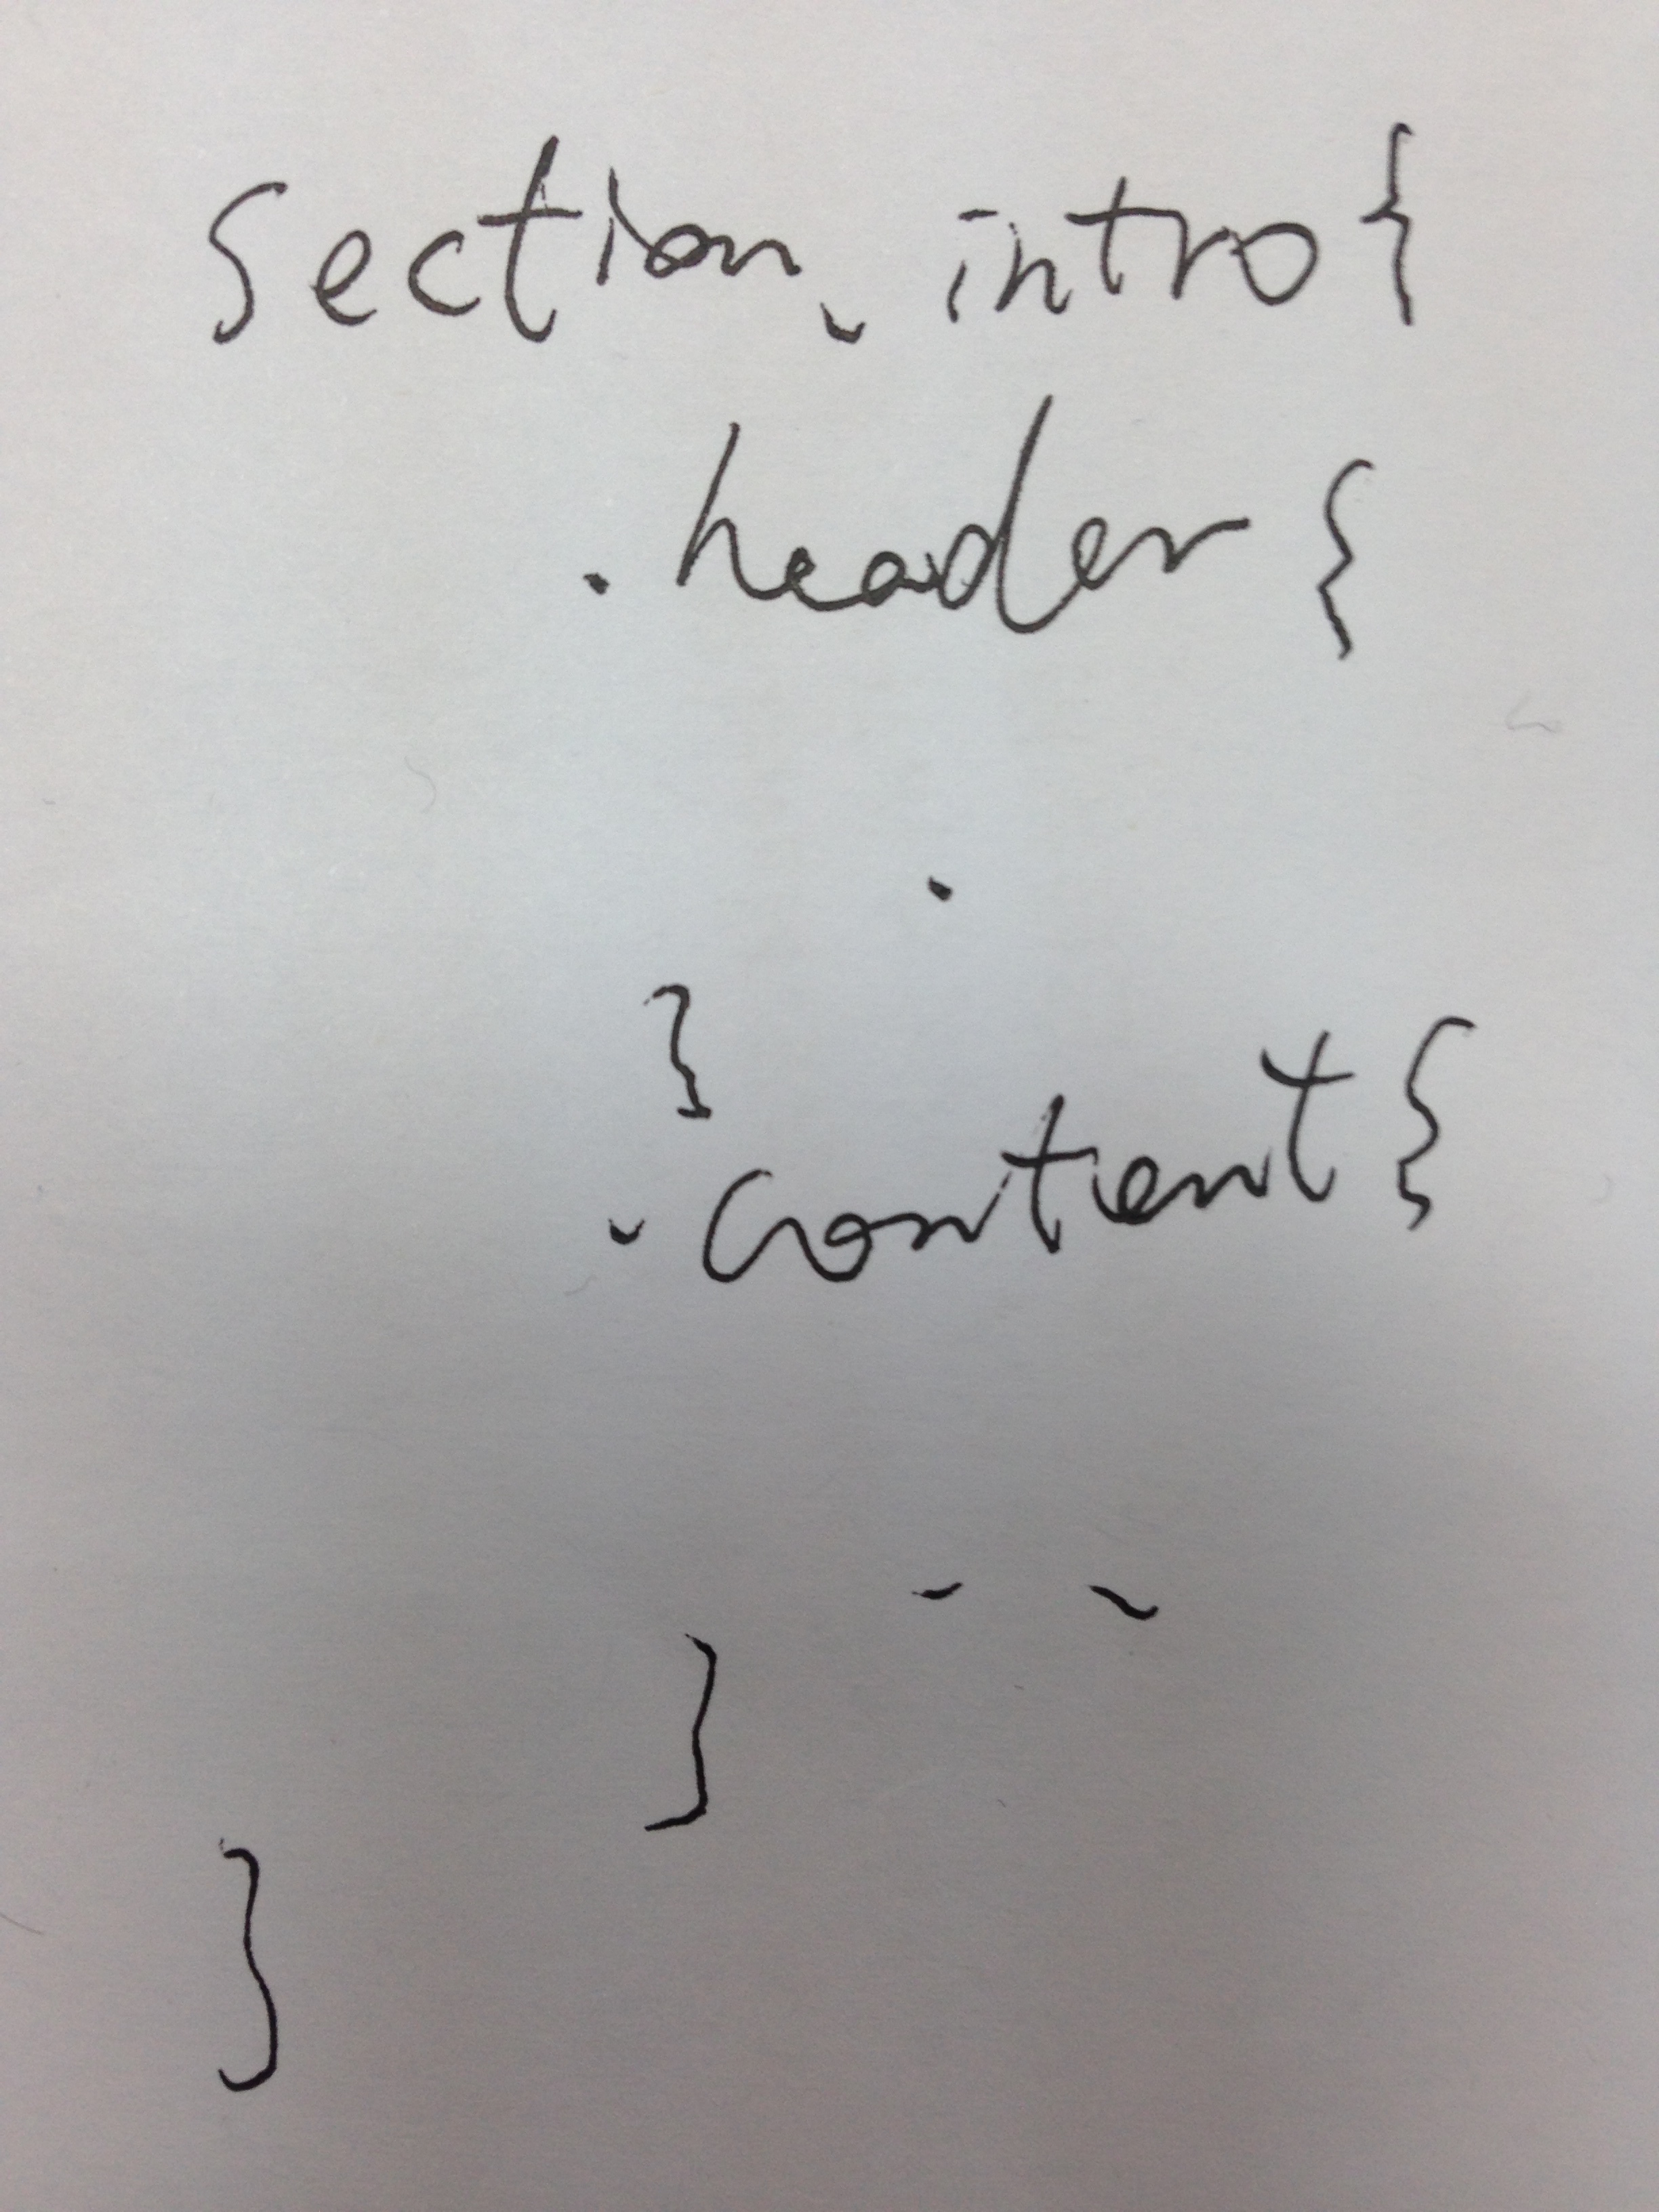 section.intro{
.header{
.
}
.content{
- -
}
}